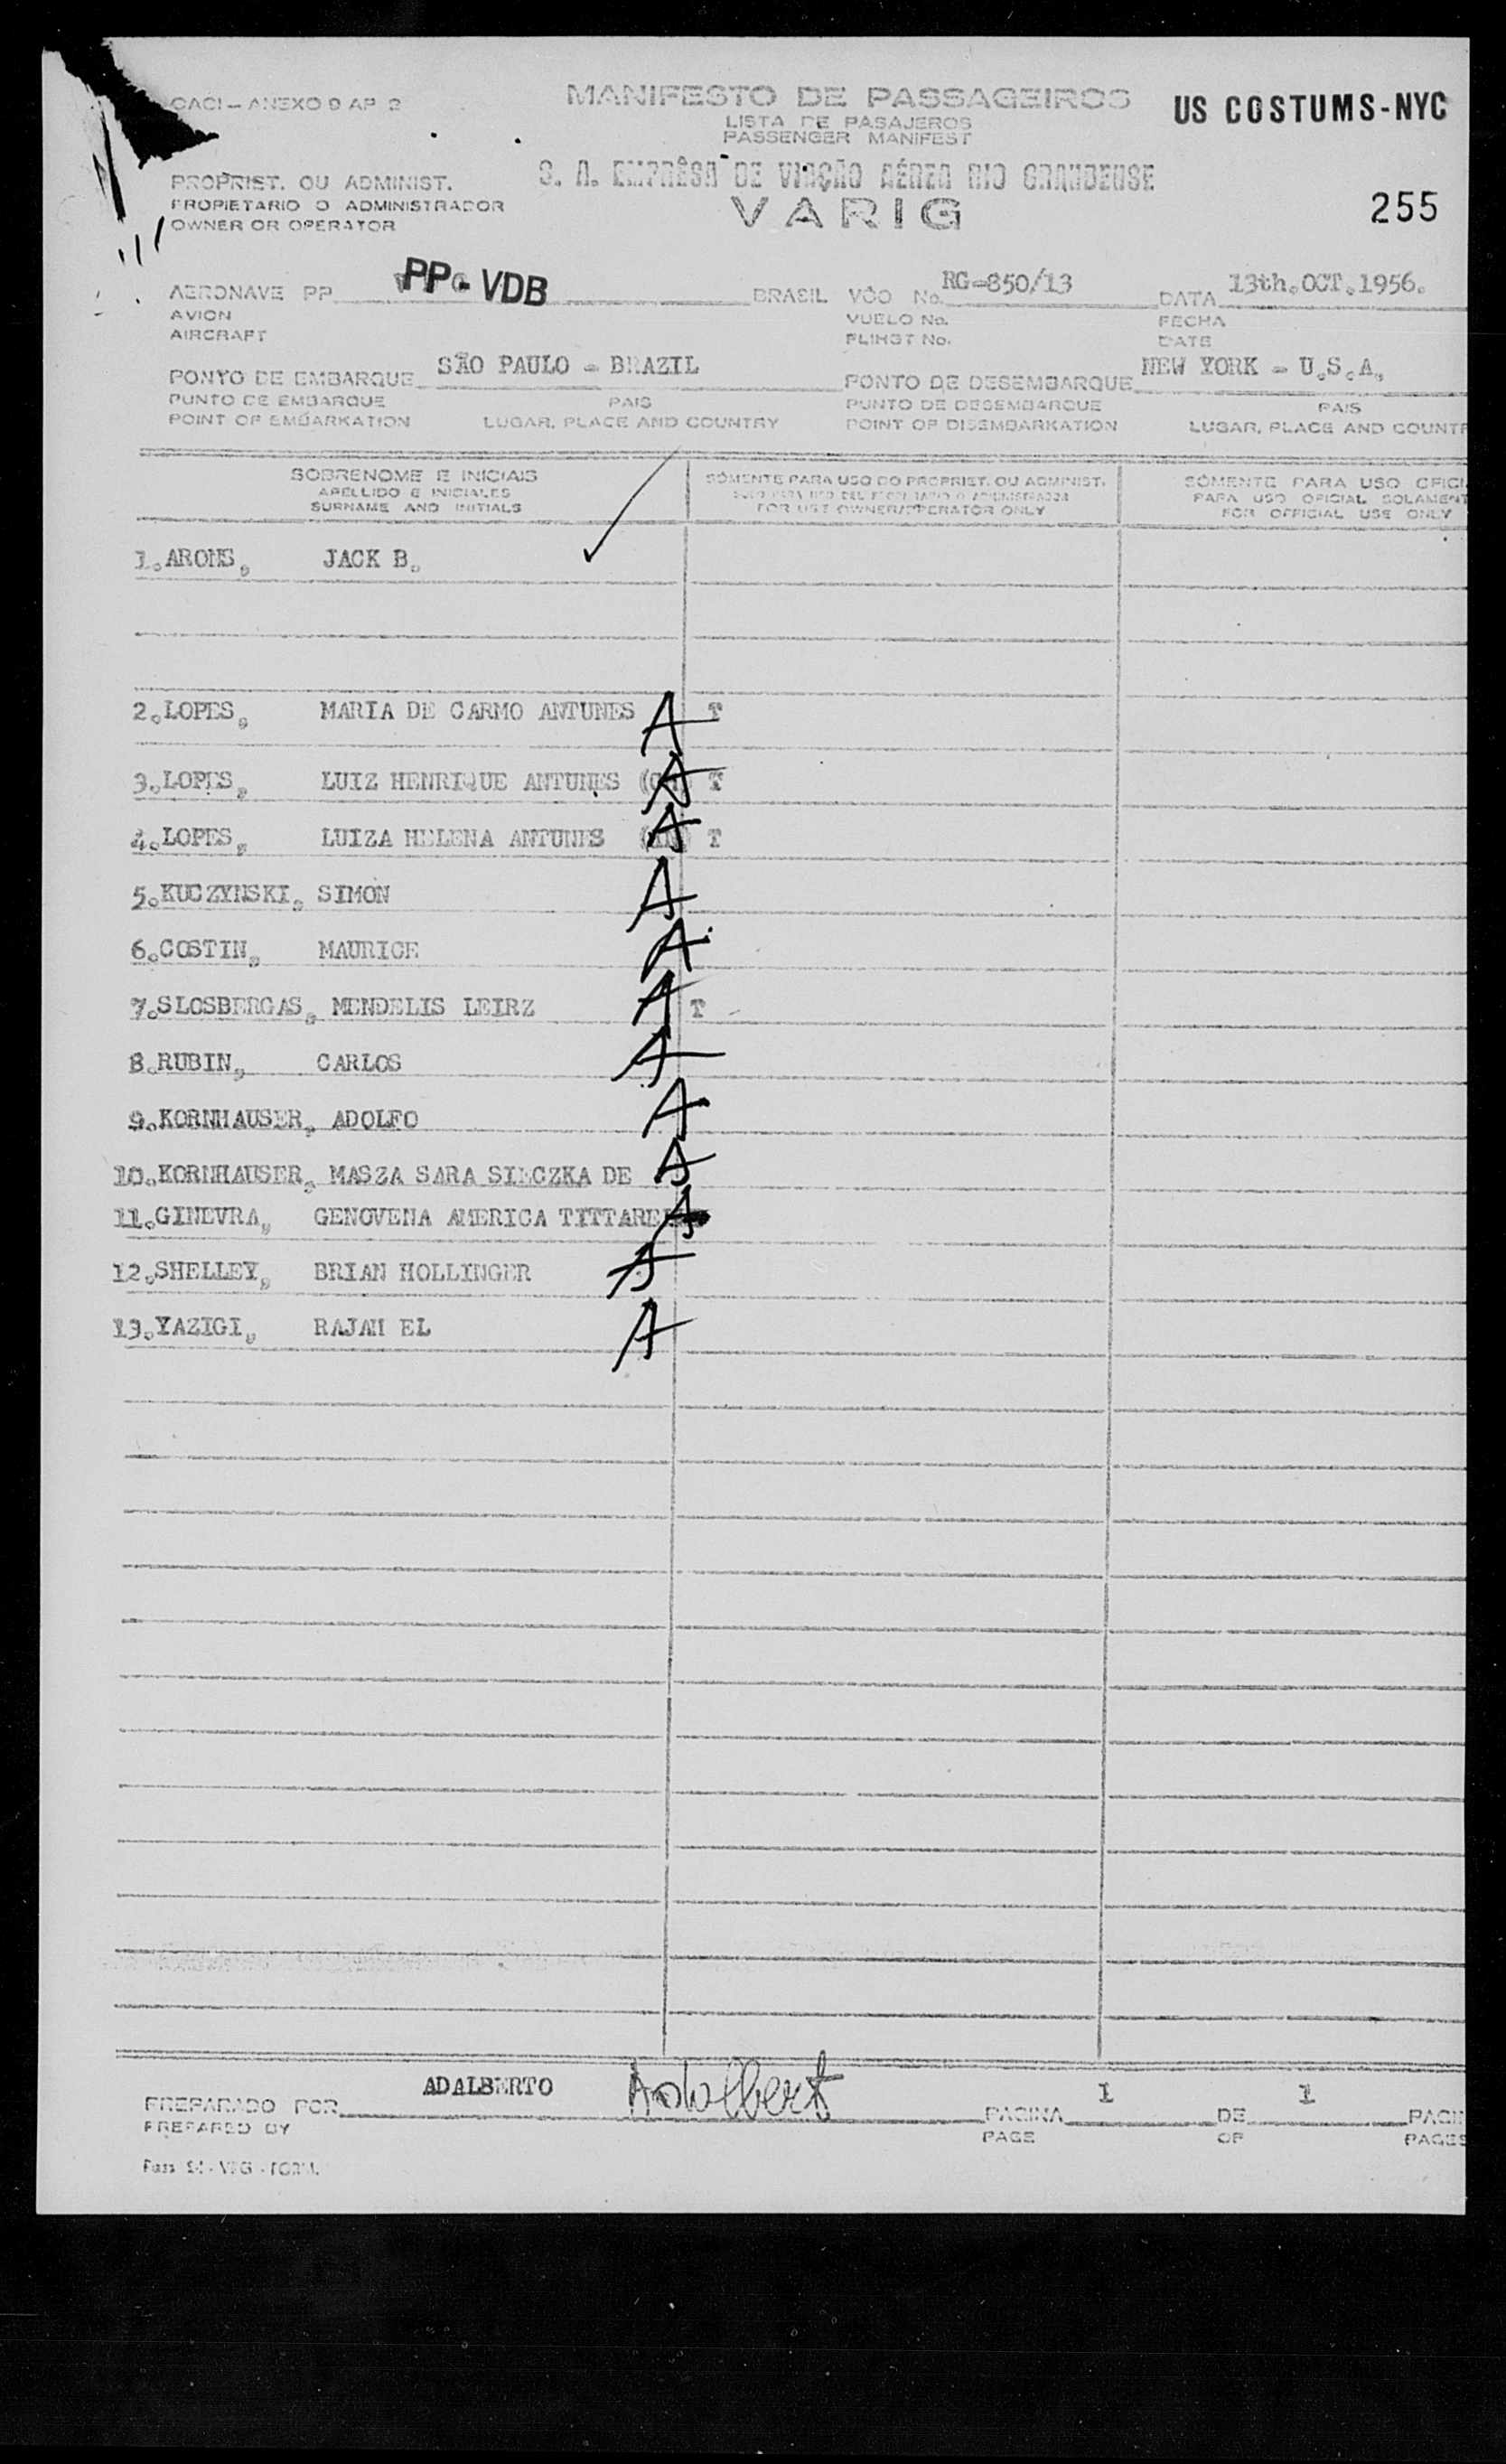 OACI - ANEXO 9 AP 2
MANIFESTO DE PASSAGEIROS
US COSTUMS-NYC
LISTA DE PASAJEROS
PASSENGER MANIFEST
S. A. EMPRÊSA DE VIAÇÃO AÉREA RIO GRANDENSE
PROPRIST. OU ADMINIST.
PROPIETARIO O ADMINISTRADOR
VARIG
255
OWNER OR OPERATOR
AERONAVE PP PP-VDB BRASIL VÔO No. RG-850/13 DATA 13th.OCT.1956.
AVION VUELO No. FECHA
AIRCRAFT FLIHGT No. DATE
PONTO DE EMBARQUE SÃO PAULO - BRAZIL PONTO DE DESEMBARQUE NEW YORK - U.S.A.
PUNTO DE EMBARQUE PAIS PUNTO DE DESEMBARQUE PAIS
POINT OF EMBARKATION LUGAR, PLACE AND COUNTRY POINT OF DISEMBARKATION LUGAR, PLACE AND COUNTR
SOBRENOME E INICIAIS SÒMENTE PARA USO DO PROPRIET. OU ADMINIST. SÒMENTE PARA USO OFICI
APELLIDO E INICIALES PARA USO OFICIAL SOLAMENT
SURNAME AND INITIALS FOR USE OWNER/OPERATOR ONLY FOR OFFICIAL USE ONLY
1.ARONS, JACK B.
2.LOPES, MARIA DE CARMO ANTUNES A T
3.LOPES, LUIZ HENRIQUE ANTUNES A T
4.LOPES, LUIZA HELENA ANTUNES A T
5.KUCZYNSKI, SIMON A
6.COSTIN, MAURICE A
7.SLOSBERGAS, MENDELIS LEIRZ A T
8.RUBIN, CARLOS A
9.KORNHAUSER, ADOLFO A
10.KORNHAUSER, MASZA SARA SIECZKA DE A
11.GINEVRA, GENOVENA AMERICA TITTARE A
12.SHELLEY, BRIAN HOLLINGER A
13.YAZIGI, RAJAH EL A
PREPARADO POR ADALBERTO Adalberto PAGINA 1 DE 1 PAGIN
PREPARED BY PAGE OF PAGES